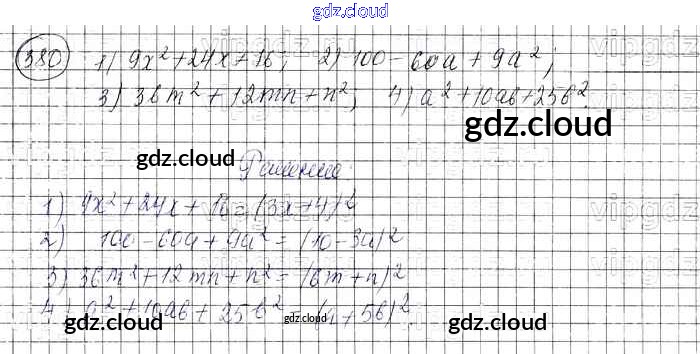 gdz.cloud
380 1) 9x² + 24x + 16; 2) 100 - 60a + 9a²;
3) 36m² + 12mn + n²; 4) a² + 10ab + 25b².
gdz.cloud
gdz.cloud
Решение:
gdz.cloud
1) 9x² + 24x + 16 = (3x + 4)²
2) 100 - 60a + 9a² = (10 - 3a)²
3) 36m² + 12mn + n² = (6m + n)²
4) a² + 10ab + 25b² = (a + 5b)².
gdz.cloud
gdz.cloud